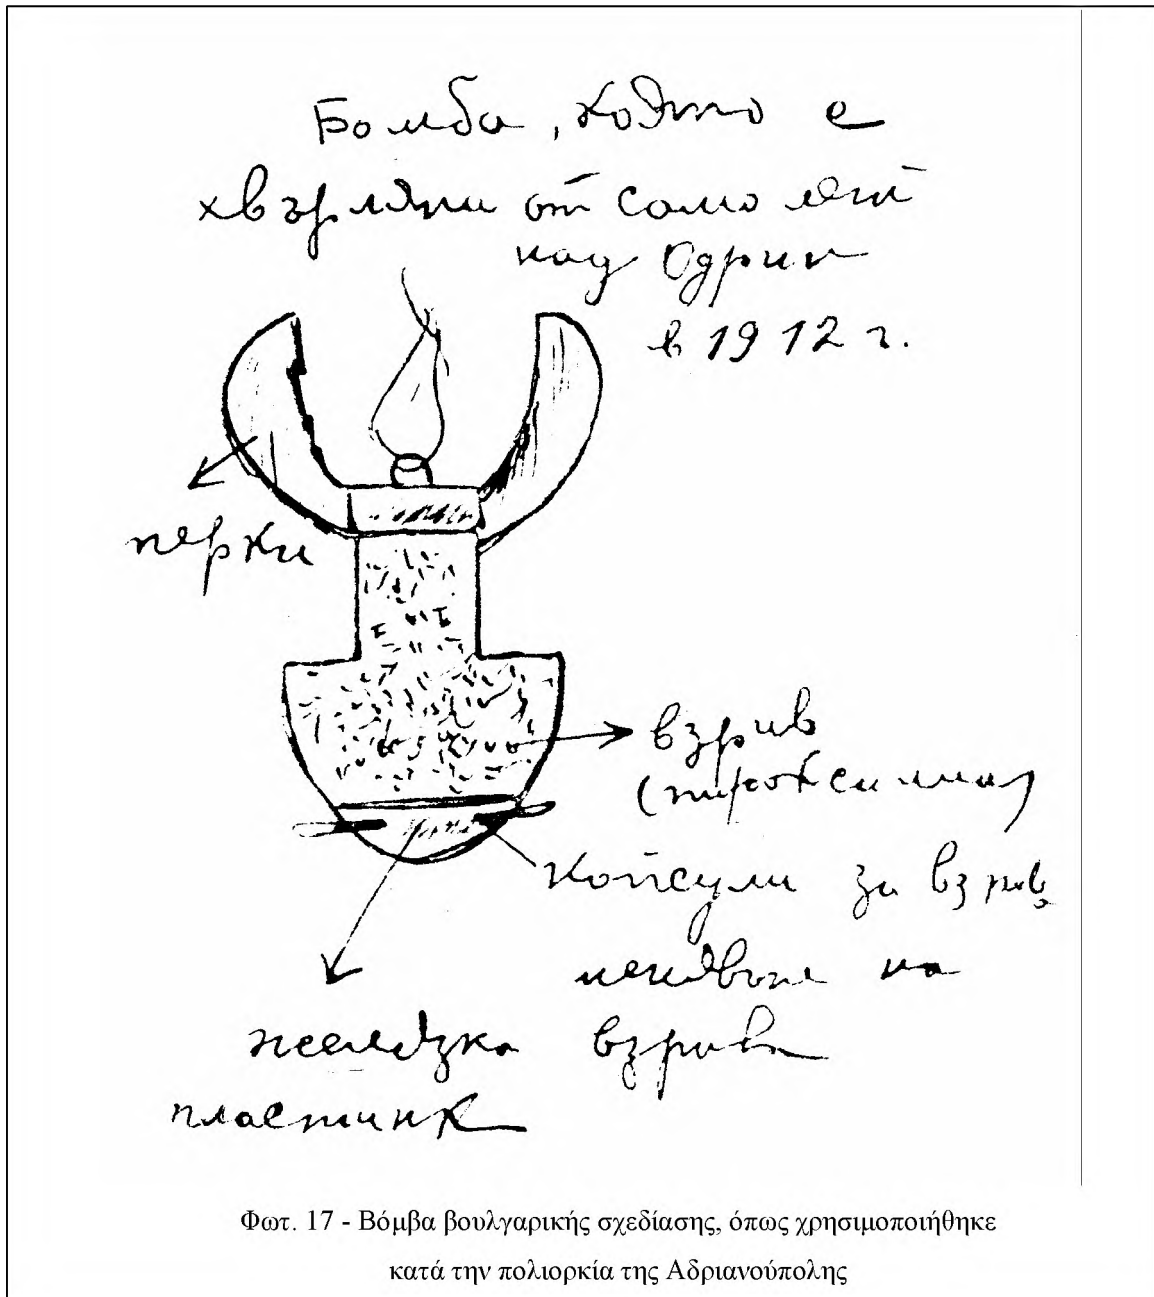 Бомба, която е
хвърляни от самолет
над Одрин
в 1912 г.
перки
взрив
(пироксилин)
капсули за взрив
на
желязка взрива
пластинка
Φωτ. 17 - Βόμβα βουλγαρικής σχεδίασης, όπως χρησιμοποιήθηκε
κατά την πολιορκία της Αδριανούπολης